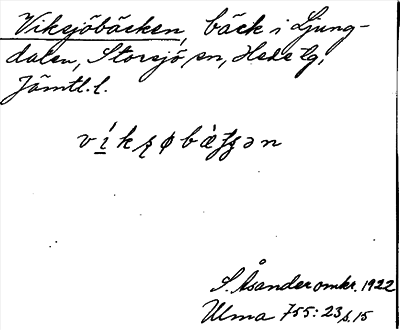 Viksjöbäcken, bäck i Ljung-
dalen, Storsjö sn, Hede tg,
Jämtl. l.
S. Åsander omkr. 1922
Ulma 755:23 s. 15